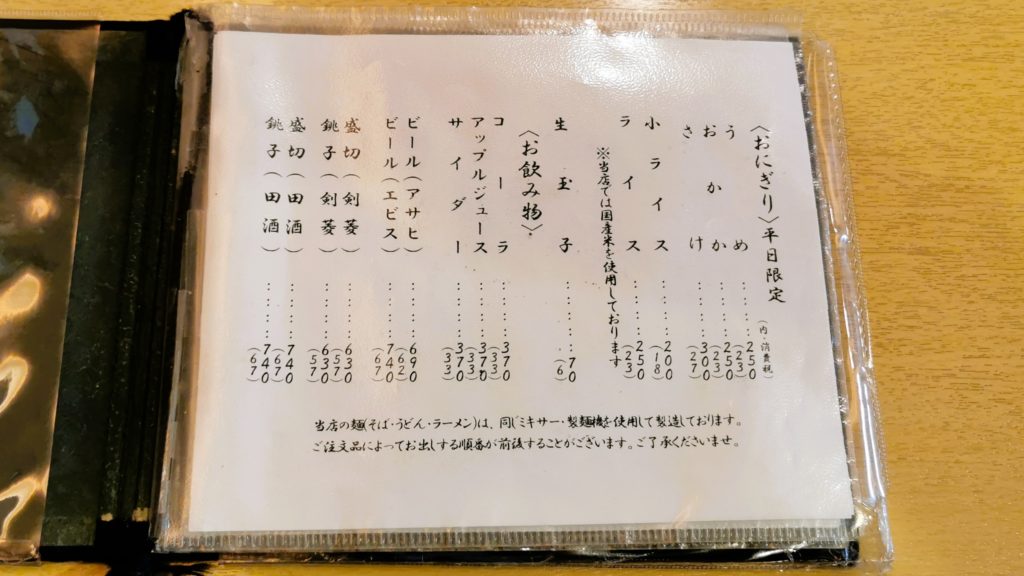 〈おにぎり〉平日限定
(内・消費税)
うめ………250(23)
おかか………250(23)
さけ………300(27)
小ライス………200(18)
ライス………250(23)
※当店では国産米を使用しております
生玉子………70(6)
〈お飲み物〉
コーラ………370(33)
アップルジュース………370(33)
サイダー………370(33)
ビール(アサヒ)………690(62)
ビール(エビス)………740(67)
盛切(剣菱)………630(57)
銚子(剣菱)………630(57)
盛切(田酒)………740(67)
銚子(田酒)………740(67)
当店の麺(そば・うどん・ラーメン)は、同じミキサー・製麺機を使用して製造しております。
ご注文品によってお出しする順番が前後することがございます。ご了承くださいませ。